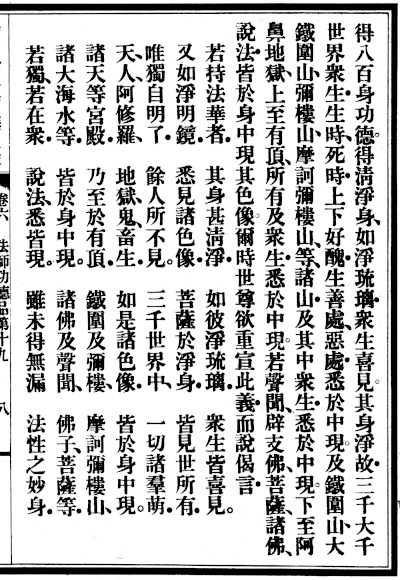 得八百身功德。得清淨身、如淨琉璃。衆生喜見。其身淨故。三千大千
世界衆生。生時死時。上下好醜。生善處、惡處。悉於中現。及鐵圍山、大
鐵圍山、彌樓山、摩訶彌樓山、等諸山。及其中衆生。悉於中現。下至阿
鼻地獄、上至有頂。所有及衆生。悉於中現。若聲聞、辟支佛、菩薩、諸佛、
說法。皆於身中現其色像。爾時世尊欲重宣此義。而說偈言。
若持法華者。 其身甚清淨。 如彼淨琉璃。 衆生皆喜見。
又如淨明鏡。 悉見諸色像。 菩薩於淨身。 皆見世所有。
唯獨自明了。 餘人所不見。 三千世界中、 一切諸羣萌。
天人阿修羅、 地獄鬼畜生、 如是諸色像。 皆於身中現。
諸天等宮殿。 乃至於有頂。 鐵圍及彌樓、 摩訶彌樓山、
諸大海水等。 皆於身中現。 諸佛及聲聞、 佛子菩薩等。
若獨若在衆、 說法悉皆現。 雖未得無漏 法性之妙身。
卷六 法師功德品第十九 八